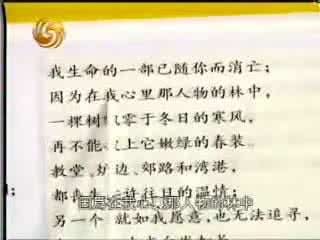 我生命的一部已随你而消亡；
因为在我心里那人物的林中，
一棵树飘零于冬日的寒风，
再不能 上它嫩绿的春装。
教堂、炉边、郊路和湾港，
都丧失 许往日的温情；
另一个 就如我愿意，也无法追寻，
因为在我心里那人物的林中